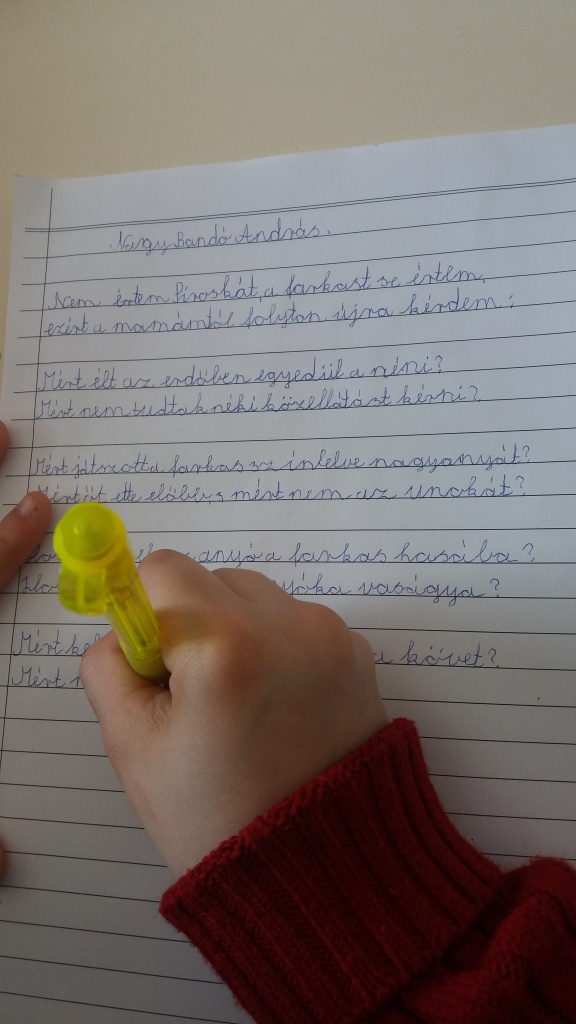 Nagy Bandó András.
Nem értem Piroskát, a farkast se értem,
ezért a mamámtól folyton újra kérdem:
Mért élt az erdőben egyedül a néni?
Mért nem tudtak néki közellátást kérni?
Mért játszotta farkas az ínlelve nagyanyát?
Mért őt ette előbb, s mért nem az unokát?
anyó a farkas hasába?
vaságya?
Mért a követ?
Mért